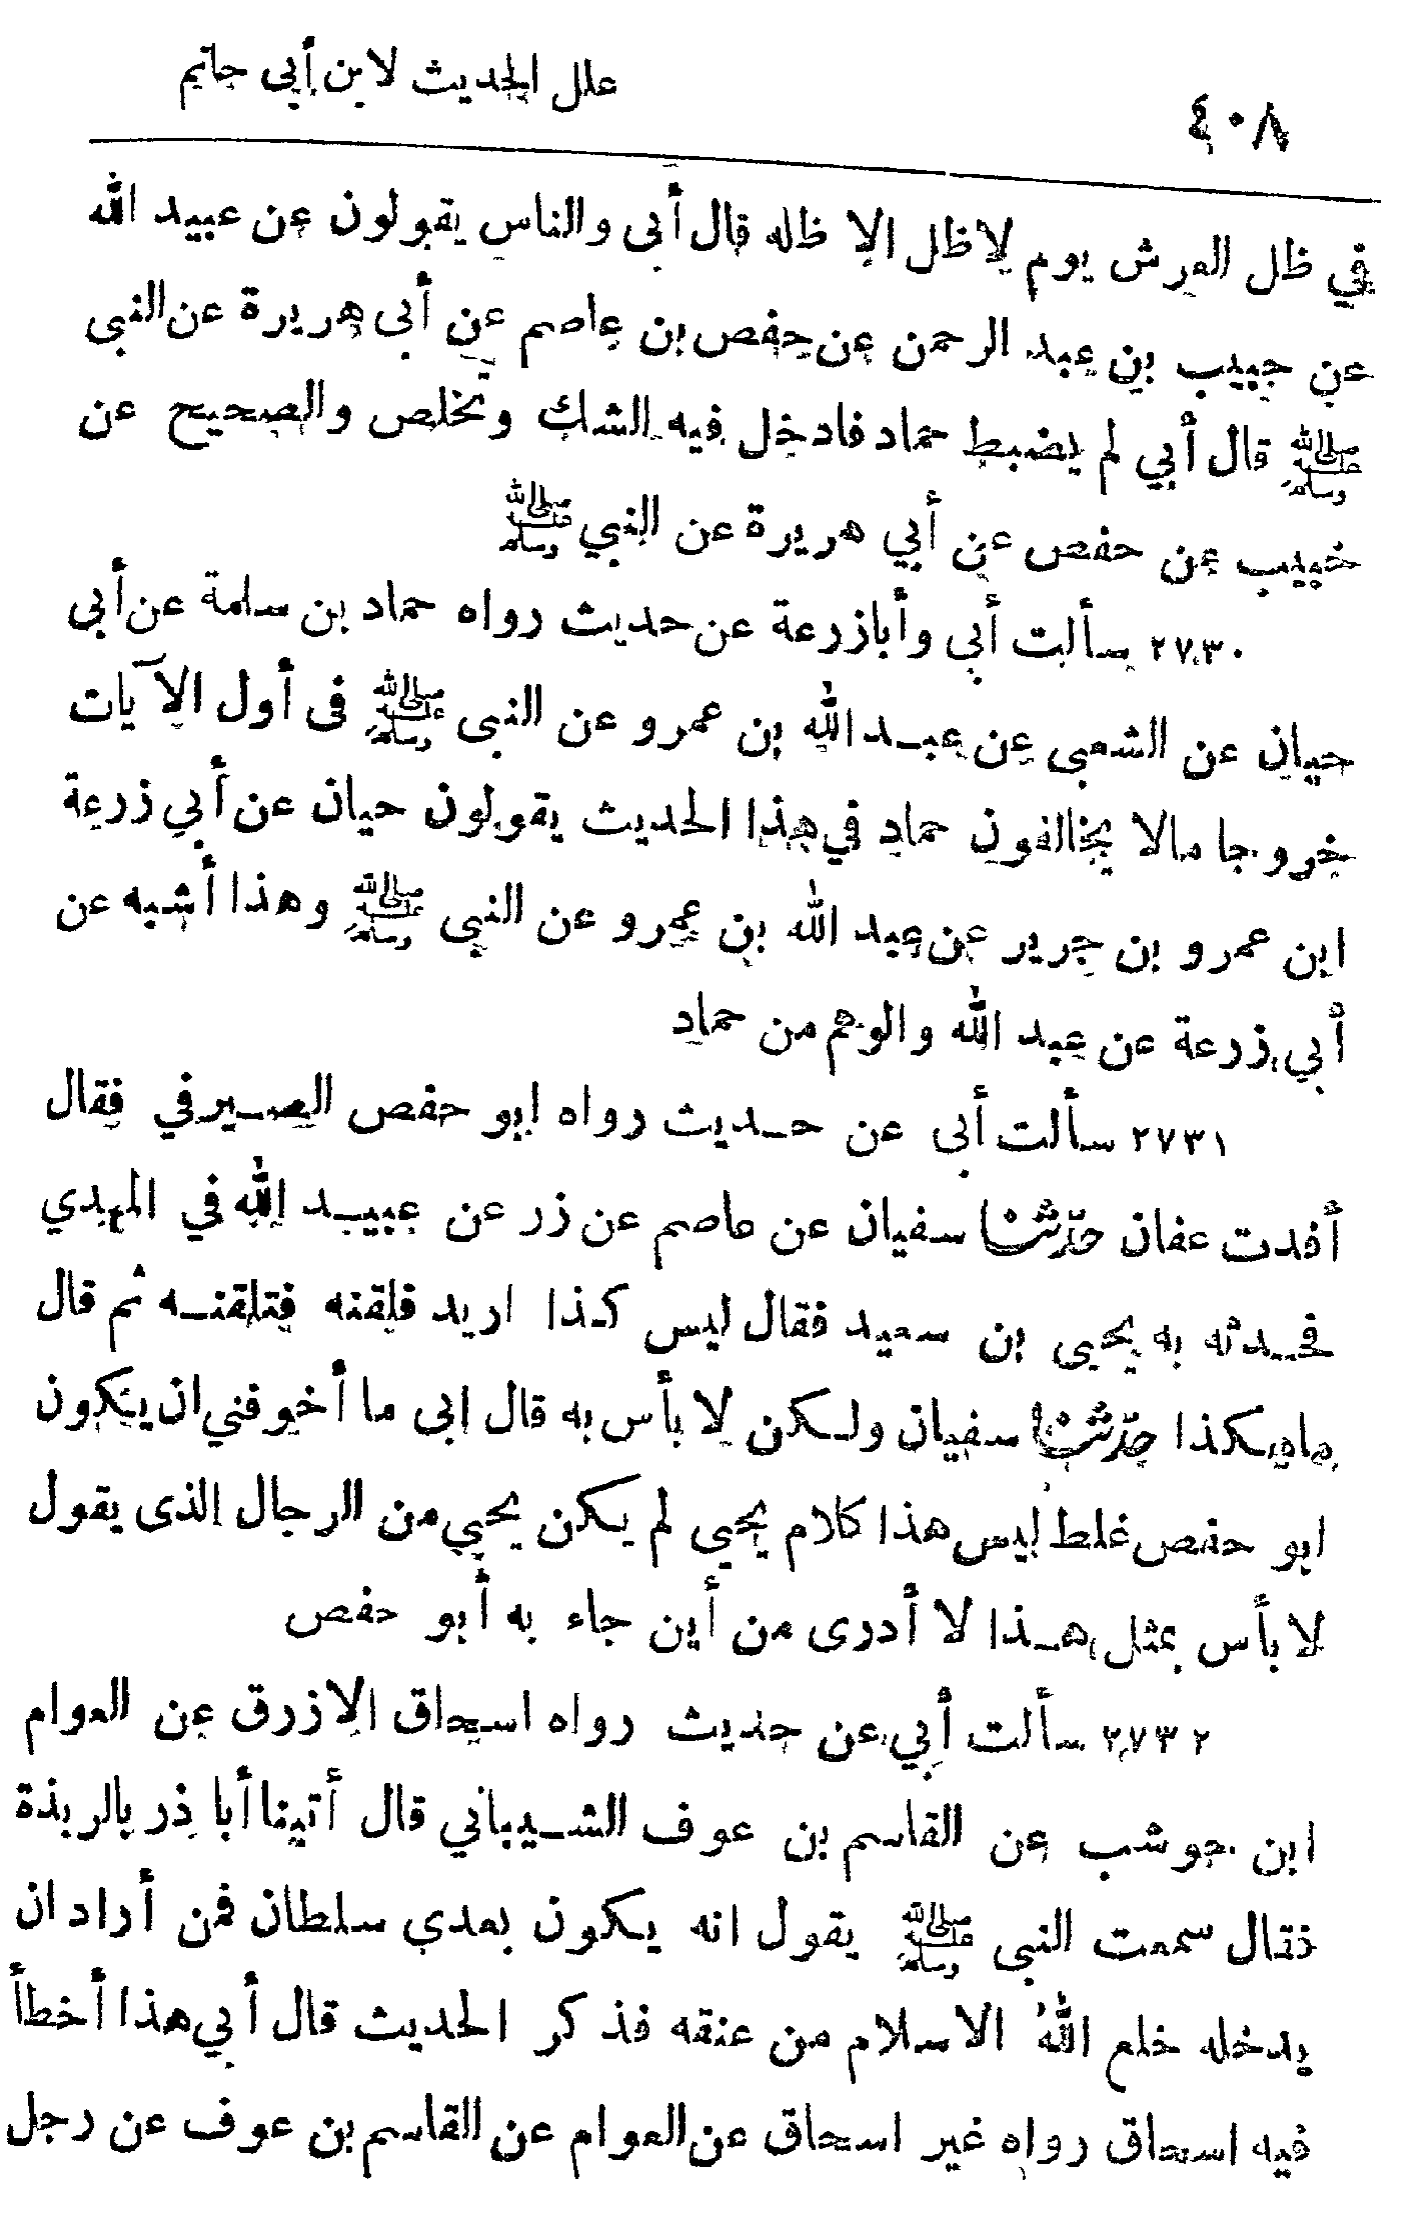 علل الحديث لابن أبي حاتم
٤٠٨
في ظل العرش يوم لا ظل الا ظله قال أبى والناس يقولون عن عبيد الله
عن خبيب بن عبد الرحمن عن حفص بن عاصم عن أبى هريرة عن النبى
ﷺ قال أبي لم يضبط حماد فادخل فيه الشك وتخلص والصحيح عن
خبيب عن حفص عن أبي هريرة عن النبي ﷺ
٢٧٣٠ سألت أبي وأبازرعة عن حديث رواه حماد بن سلمة عن أبى
حيان عن الشعبى عن عبد الله بن عمرو عن النبى ﷺ فى أول الآيات
خروجا مالا يخالفون حماد في هذا الحديث يقولون حيان عن أبي زرعة
ابن عمرو بن جرير عن عبد الله بن عمرو عن النبي ﷺ وهذا أشبه عن
أبي زرعة عن عبد الله والوهم من حماد
٢٧٣١ سألت أبى عن حديث رواه ابو حفص الصيرفي فقال
أفدت عفان حدّثنا سفيان عن عاصم عن زر عن عبيد الله في المهدي
فحدثه به يحيى بن سعيد فقال ليس كذا اريد فلقنه فتلقنه ثم قال
ماهكذا حدّثنا سفيان ولكن لا بأس به قال ابى ما أخوفني ان يكون
ابو حفص غلط ليس هذا كلام يحيى لم يكن يحيي من الرجال الذى يقول
لا بأس بمثل هذا لا أدرى من أين جاء به أبو حفص
٢٧٣٢ سألت أبي عن حديث رواه اسحاق الازرق عن العوام
ابن حوشب عن القاسم بن عوف الشيباني قال أتينا أبا ذر بالربذة
فقال سمعت النبى ﷺ يقول انه يكون بعدي سلطان فمن أراد ان
يدخله خلع اللهُ الاسلام من عنقه فذكر الحديث قال أبي هذا أخطأ
فيه اسحاق رواه غير اسحاق عن العوام عن القاسم بن عوف عن رجل